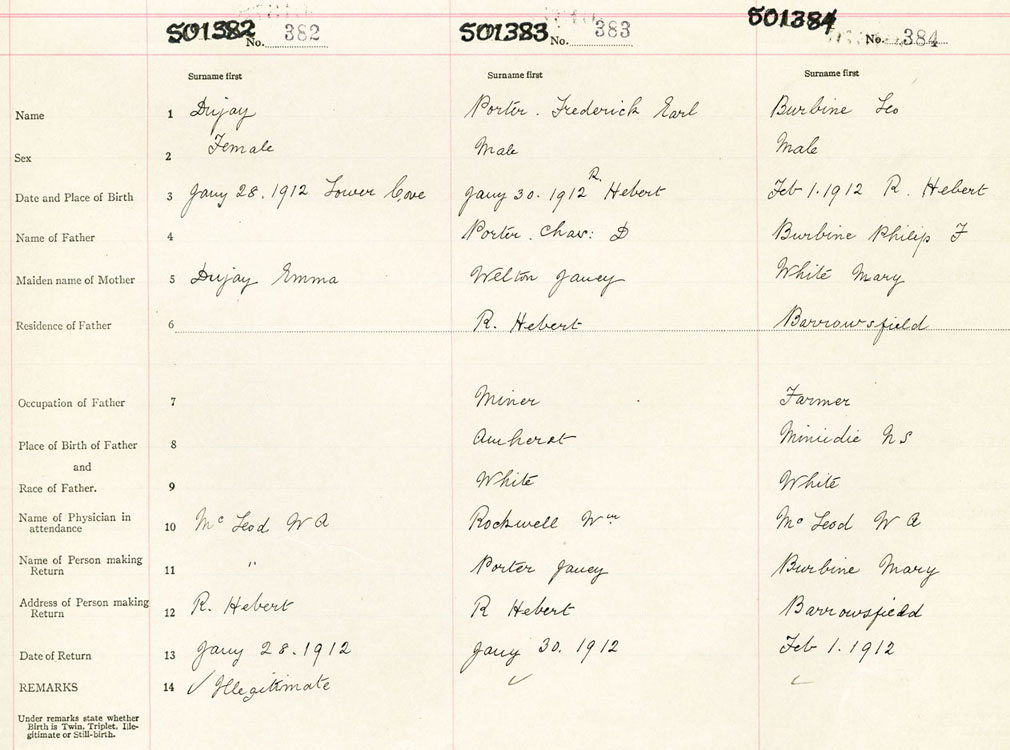 501382 No. 382 501383 No. 383 501384 No. 384
Surname first Surname first Surname first
Name 1 Dujay Porter. Frederick Earl Burbine Leo
Sex 2 Female Male Male
Date and Place of Birth 3 Jany 28. 1912 Lower Cove Jany 30. 1912 R. Hebert Feb 1. 1912 R. Hebert
Name of Father 4 Porter. Chas: D Burbine Philip F
Maiden name of Mother 5 Dujay Emma Welton Janey White Mary
Residence of Father 6 R. Hebert Barrowsfield
Occupation of Father 7 Miner Farmer
Place of Birth of Father 8 Amherst Minudie NS
and
Race of Father. 9 White White
Name of Physician in attendance 10 Mc Leod W A Rockwell Wm Mc Leod W A
Name of Person making Return 11 " Porter Janey Burbine Mary
Address of Person making Return 12 R. Hebert R Hebert Barrowsfield
Date of Return 13 Jany 28. 1912 Jany 30. 1912 Feb 1. 1912
REMARKS 14 ✓ Illegitimate ✓ ✓
Under remarks state whether
Birth is Twin, Triplet, Ille-
gitimate or Still-birth.